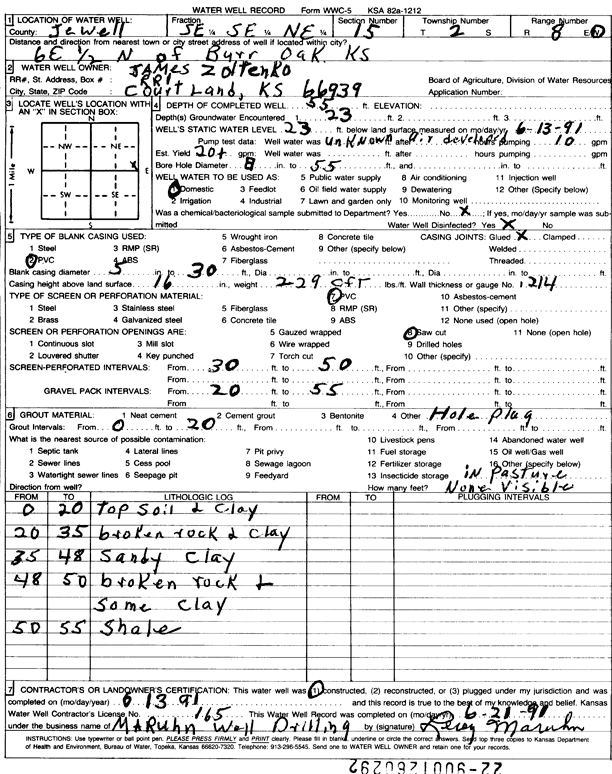 WATER WELL RECORD Form WWC-5 KSA 82a-1212
1 LOCATION OF WATER WELL: Fraction Section Number Township Number Range Number
County: Jewell SE ¼ SE ¼ NE ¼ 15 T 2 S R 8 E/W
Distance and direction from nearest town or city street address of well if located within city?
6E 1/2 N of Burr Oak KS
2 WATER WELL OWNER: JAMES Zoltenko
RR#, St. Address, Box # : RR1 Board of Agriculture, Division of Water Resources
City, State, ZIP Code : Courtland, KS 66939 Application Number:
3 LOCATE WELL'S LOCATION WITH AN "X" IN SECTION BOX:
N
NW NE
W E X
SW SE
S
1 Mile
4 DEPTH OF COMPLETED WELL 55 ft. ELEVATION:
Depth(s) Groundwater Encountered 1. 23 ft. 2. ft. 3. ft.
WELL'S STATIC WATER LEVEL 23 ft. below land surface measured on mo/day/yr 6-13-91
Pump test data: Well water was unknown ft. after air developed hours pumping 10 gpm
Est. Yield 20+ gpm: Well water was ft. after hours pumping gpm
Bore Hole Diameter 8 in. to 55 ft., and in. to ft.
WELL WATER TO BE USED AS: 5 Public water supply 8 Air conditioning 11 Injection well
1 Domestic 3 Feedlot 6 Oil field water supply 9 Dewatering 12 Other (Specify below)
2 Irrigation 4 Industrial 7 Lawn and garden only 10 Monitoring well
Was a chemical/bacteriological sample submitted to Department? Yes No X ; If yes, mo/day/yr sample was submitted Water Well Disinfected? Yes X No
5 TYPE OF BLANK CASING USED: 5 Wrought iron 8 Concrete tile CASING JOINTS: Glued X Clamped
1 Steel 3 RMP (SR) 6 Asbestos-Cement 9 Other (specify below) Welded
2 PVC 4 ABS 7 Fiberglass Threaded.
Blank casing diameter 5 in. to 30 ft., Dia in. to ft., Dia in. to ft.
Casing height above land surface 16 in., weight 2-29 oft lbs./ft. Wall thickness or gauge No. .214
TYPE OF SCREEN OR PERFORATION MATERIAL: 7 PVC 10 Asbestos-cement
1 Steel 3 Stainless steel 5 Fiberglass 8 RMP (SR) 11 Other (specify)
2 Brass 4 Galvanized steel 6 Concrete tile 9 ABS 12 None used (open hole)
SCREEN OR PERFORATION OPENINGS ARE: 5 Gauzed wrapped 8 Saw cut 11 None (open hole)
1 Continuous slot 3 Mill slot 6 Wire wrapped 9 Drilled holes
2 Louvered shutter 4 Key punched 7 Torch cut 10 Other (specify)
SCREEN-PERFORATED INTERVALS: From 30 ft. to 50 ft., From ft. to ft.
From ft. to ft., From ft. to ft.
GRAVEL PACK INTERVALS: From 20 ft. to 55 ft., From ft. to ft.
From ft. to ft., From ft. to ft.
6 GROUT MATERIAL: 1 Neat cement 2 Cement grout 3 Bentonite 4 Other Hole plug
Grout Intervals: From 0 ft. to 20 ft., From ft. to ft., From ft. to ft.
What is the nearest source of possible contamination: 10 Livestock pens 14 Abandoned water well
1 Septic tank 4 Lateral lines 7 Pit privy 11 Fuel storage 15 Oil well/Gas well
2 Sewer lines 5 Cess pool 8 Sewage lagoon 12 Fertilizer storage 16 Other (specify below)
3 Watertight sewer lines 6 Seepage pit 9 Feedyard 13 Insecticide storage in Pasture
Direction from well? How many feet? None Visible
FROM TO LITHOLOGIC LOG FROM TO PLUGGING INTERVALS
0 20 Top Soil & Clay
20 35 broken rock & Clay
35 48 Sandy Clay
48 50 broken rock &
Some Clay
50 55 Shale
7 CONTRACTOR'S OR LANDOWNER'S CERTIFICATION: This water well was (1) constructed, (2) reconstructed, or (3) plugged under my jurisdiction and was
completed on (mo/day/year) 6 13 91 and this record is true to the best of my knowledge and belief. Kansas
Water Well Contractor's License No. 165 This Water Well Record was completed on (mo/day/yr) 6-21-91
under the business name of MARUHN Well Drilling by (signature) Leroy Maruhn
INSTRUCTIONS: Use typewriter or ball point pen. PLEASE PRESS FIRMLY and PRINT clearly. Please fill in blanks, underline or circle the correct answers. Send top three copies to Kansas Department
of Health and Environment, Bureau of Water, Topeka, Kansas 66620-7320. Telephone: 913-296-5545. Send one to WATER WELL OWNER and retain one for your records.